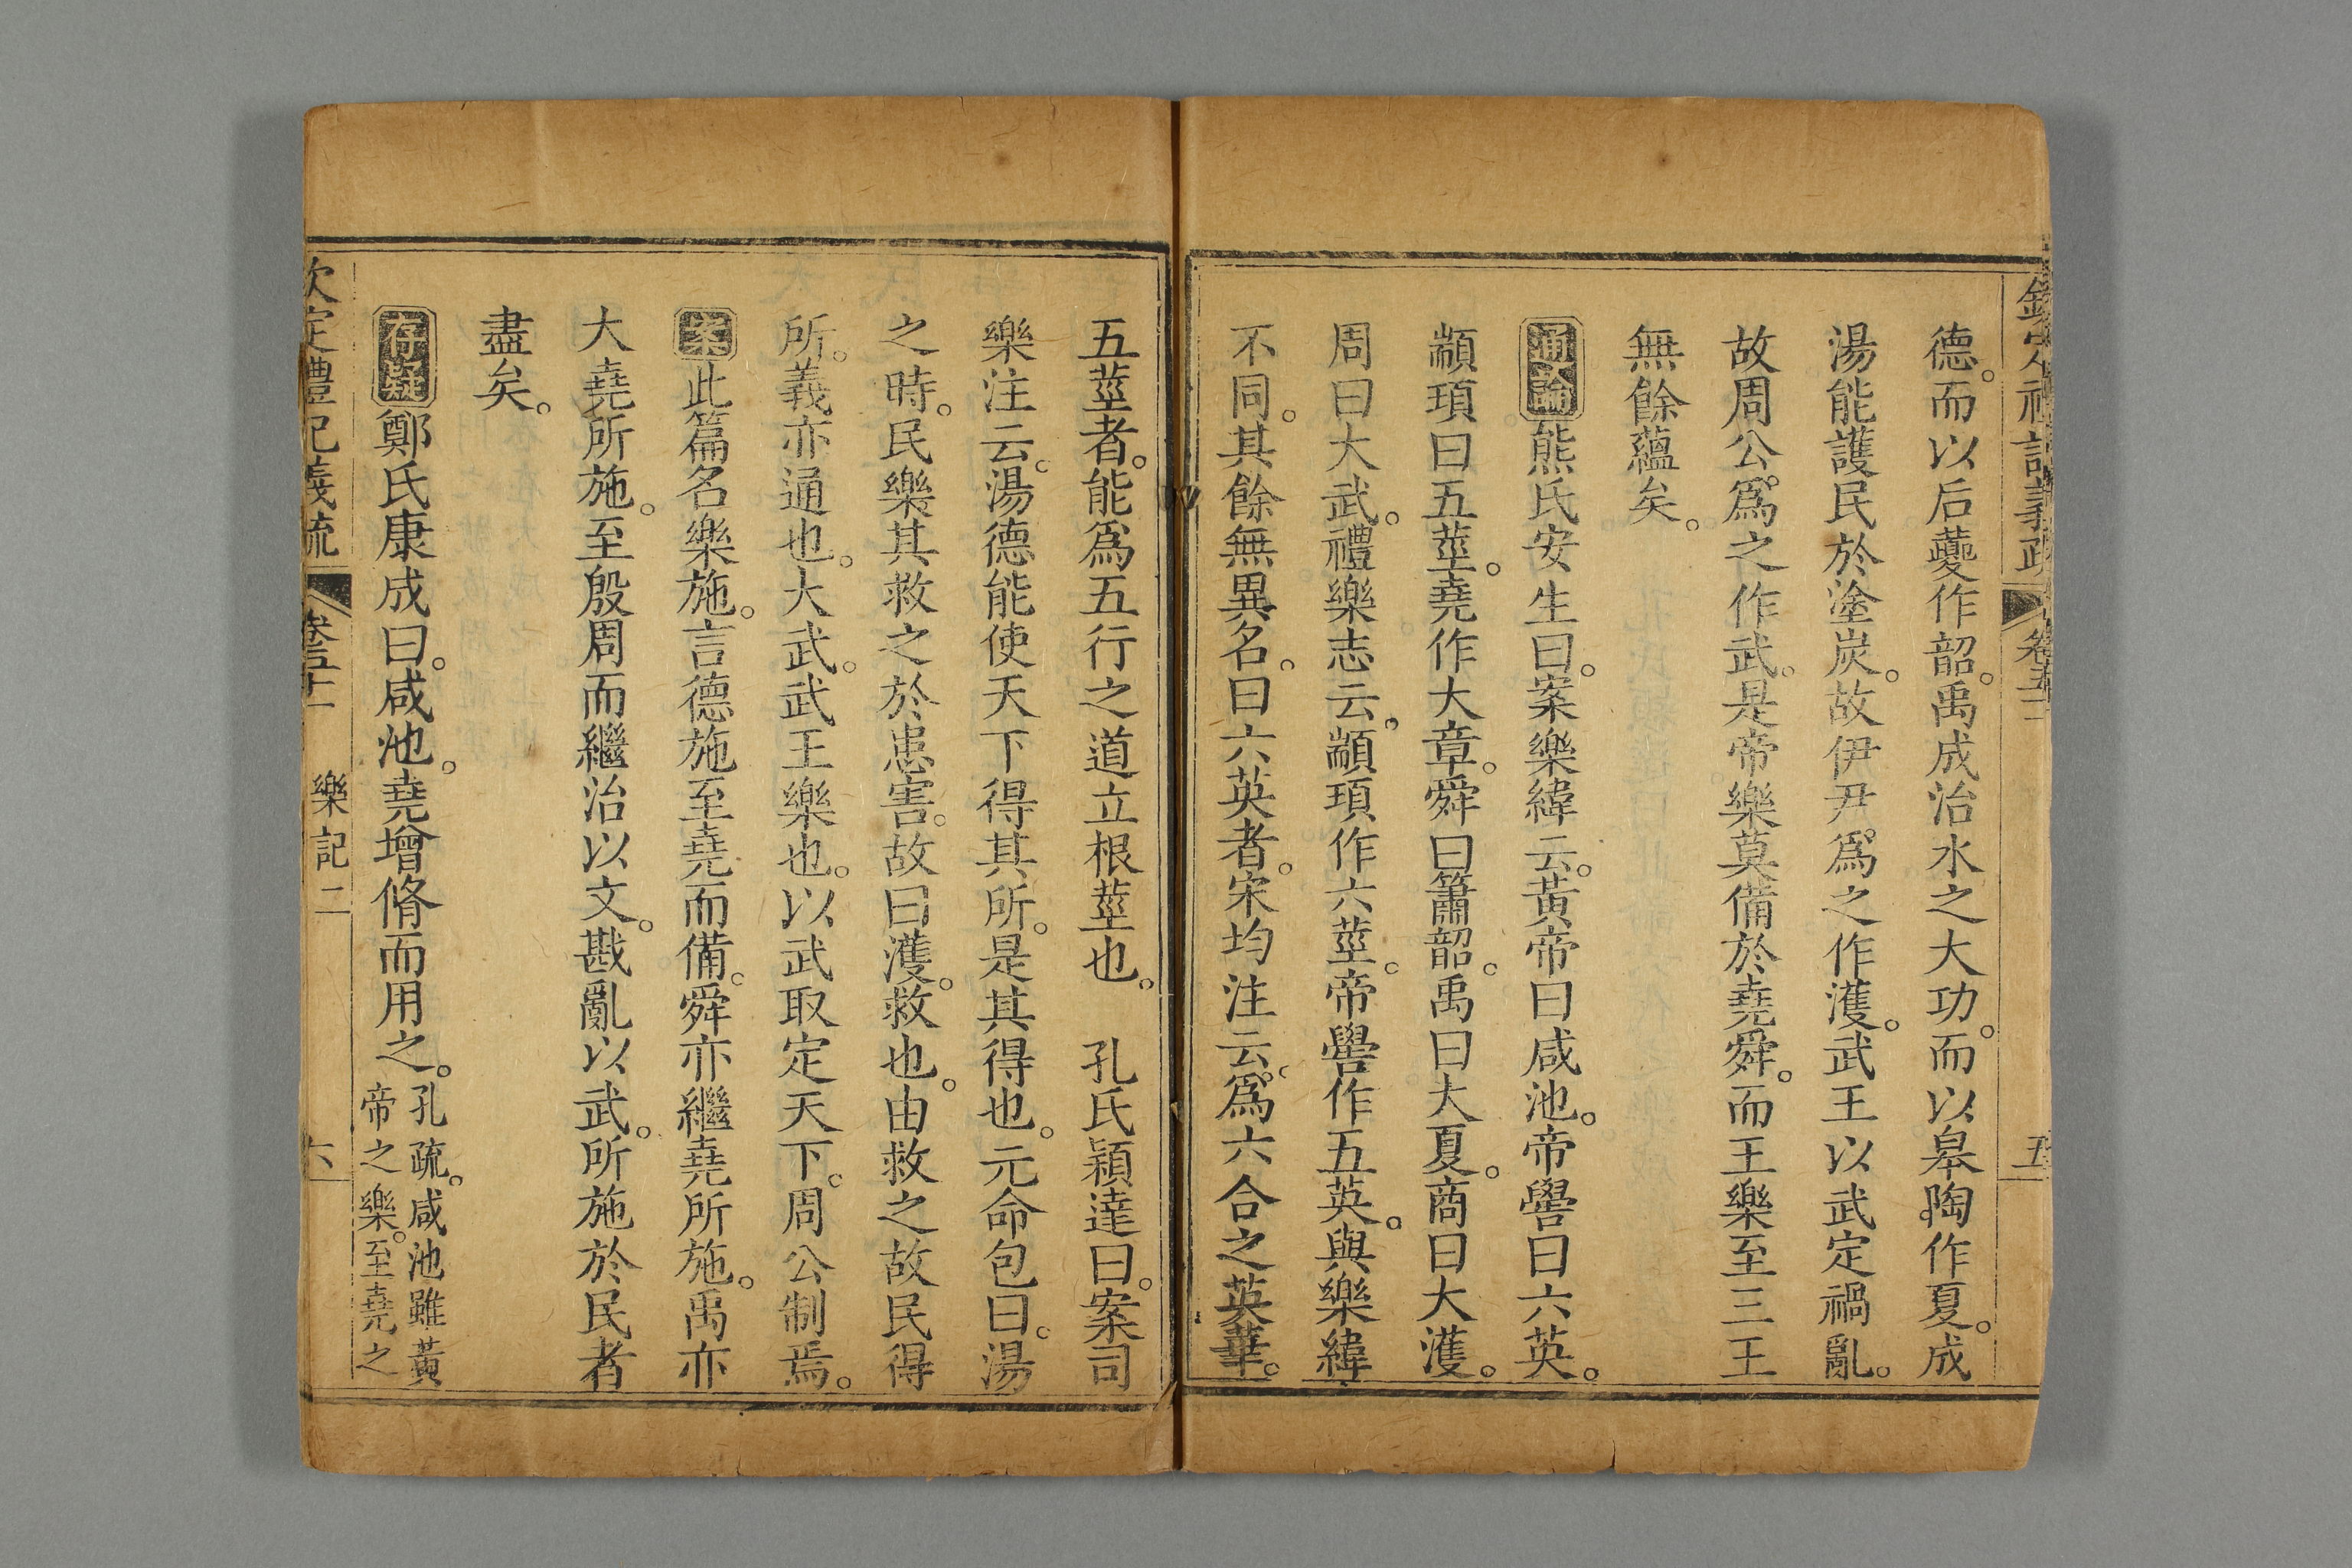 欽定禮記義疏 卷五十一 五
德。而以后夔作韶。禹成治水之大功。而以皋陶作夏。成
湯能護民於塗炭。故伊尹爲之作濩。武王以武定禍亂。
故周公爲之作武。是帝樂莫備於堯舜。而王樂至三王
無餘蘊矣。
通論熊氏安生曰。案樂緯云。黃帝曰咸池。帝嚳曰六英。
顓頊曰五莖。堯作大章。舜曰簫韶。禹曰大夏。商曰大濩。
周曰大武。禮樂志云。顓頊作六莖。帝嚳作五英。與樂緯
不同。其餘無異名。曰六英者。宋均注云。爲六合之英華。
五莖者。能爲五行之道立根莖也。 孔氏穎達曰。案司
樂注云。湯德能使天下得其所。是其得也。元命包曰。湯
之時。民樂其救之於患害。故曰濩。救也。由救之故民得
所。義亦通也。大武。武王樂也。以武取定天下。周公制焉。
案此篇名樂施。言德施至堯而備。舜亦繼堯所施。禹亦
大堯所施。至殷周而繼治以文。戡亂以武。所施於民者
盡矣。
存疑鄭氏康成曰。咸池。堯增脩而用之。孔疏。咸池雖黃
帝之樂。至堯之
欽定禮記義疏 卷五十一 樂記二 六